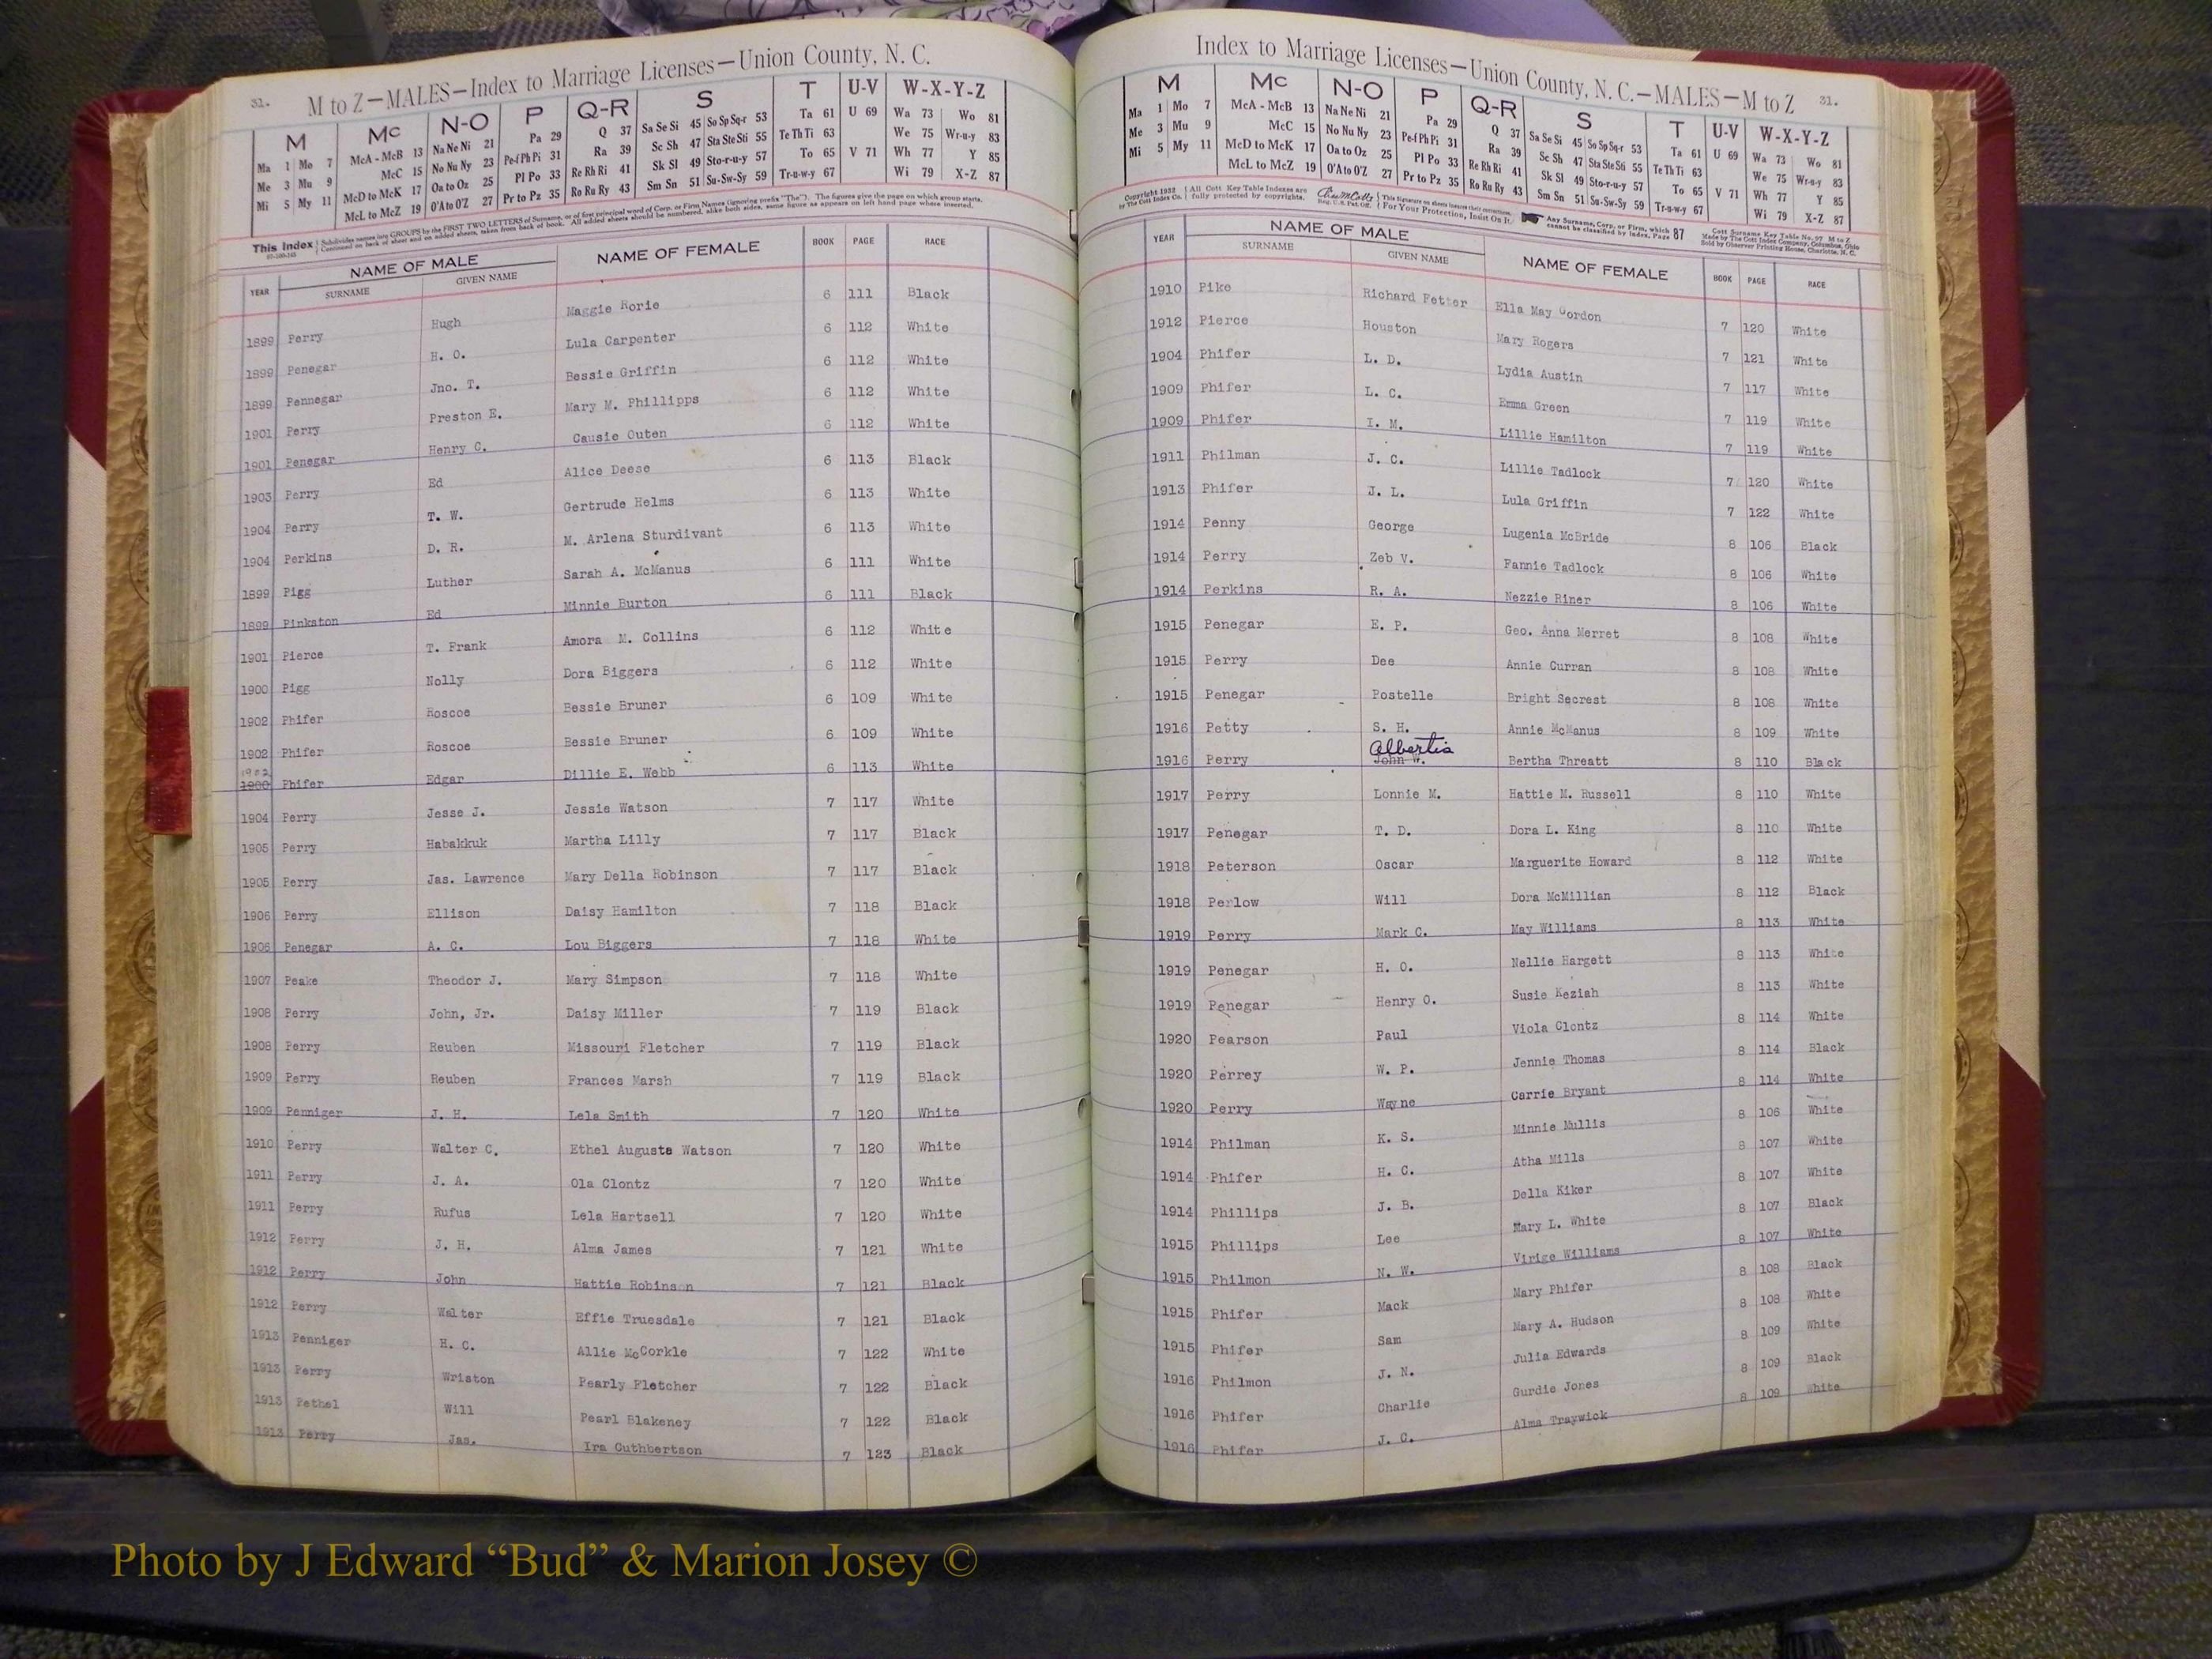 31. M to Z—MALES—Index to Marriage Licenses—Union County, N. C.
M Mc N-O P Q-R S T U-V W-X-Y-Z
Ma 1 Mo 7 McA - McB 13 Na Ne Ni 21 Pa 29 Q 37 Sa Se Si 45 So Sp Sq-r 53 Ta 61 U 69 Wa 73 Wo 81
Me 3 Mu 9 McC 15 No Nu Ny 23 Pe-f Ph Pi 31 Ra 39 Sc Sh 47 Sta Ste Sti 55 Te Th Ti 63 We 75 Wr-u-y 83
Mi 5 My 11 McD to McK 17 Oa to Oz 25 Pl Po 33 Re Rh Ri 41 Sk Sl 49 Sto-r-u-y 57 To 65 V 71 Wh 77 Y 85
McL to McZ 19 O'A to O'Z 27 Pr to Pz 35 Ro Ru Ry 43 Sm Sn 51 Su-Sw-Sy 59 Tr-u-w-y 67 Wi 79 X-Z 87
This Index Subdivides names into GROUPS by the FIRST TWO LETTERS of Surname, or of first principal word of Corp. or Firm Names (ignoring prefix "The"). The figures give the page on which group starts.
Continued on back of sheet and on added sheets, taken from back of book. All added sheets should be numbered, alike both sides, same figure as appears on left hand page where inserted.
YEAR NAME OF MALE NAME OF FEMALE BOOK PAGE RACE
SURNAME GIVEN NAME
1899 Perry Hugh Maggie Rorie 6 111 Black
1899 Penegar H. O. Lula Carpenter 6 112 White
1899 Pennegar Jno. T. Bessie Griffin 6 112 White
1901 Perry Preston E. Mary M. Phillipps 6 112 White
1901 Penegar Henry C. Causie Outen 6 112 White
1903 Perry Ed Alice Deese 6 113 Black
1904 Perry T. W. Gertrude Helms 6 113 White
1904 Perkins D. R. M. Arlena Sturdivant 6 113 White
1899 Pigg Luther Sarah A. McManus 6 111 White
1899 Pinkston Ed Minnie Burton 6 111 Black
1901 Pierce T. Frank Amora M. Collins 6 112 White
1900 Pigg Nolly Dora Biggers 6 112 White
1902 Phifer Roscoe Bessie Bruner 6 109 White
1902 Phifer Roscoe Bessie Bruner 6 109 White
1902
1900 Phifer Edgar Dillie E. Webb 6 113 White
1904 Perry Jesse J. Jessie Watson 7 117 White
1905 Perry Habakkuk Martha Lilly 7 117 Black
1905 Perry Jas. Lawrence Mary Della Robinson 7 117 Black
1906 Perry Ellison Daisy Hamilton 7 118 Black
1906 Penegar A. C. Lou Biggers 7 118 White
1907 Peake Theodor J. Mary Simpson 7 118 White
1908 Perry John, Jr. Daisy Miller 7 119 Black
1908 Perry Reuben Missouri Fletcher 7 119 Black
1909 Perry Reuben Frances Marsh 7 119 Black
1909 Penniger J. H. Lela Smith 7 120 White
1910 Perry Walter C. Ethel Auguste Watson 7 120 White
1911 Perry J. A. Ola Clontz 7 120 White
1911 Perry Rufus Lela Hartsell 7 120 White
1912 Perry J. H. Alma James 7 121 White
1912 Perry John Hattie Robinson 7 121 Black
1912 Perry Walter Effie Truesdale 7 121 Black
1913 Penniger H. C. Allie McCorkle 7 122 White
1913 Perry Wriston Pearly Fletcher 7 122 Black
1913 Pethel Will Pearl Blakeney 7 122 Black
1913 Perry Jas. Ira Cuthbertson 7 123 Black
Index to Marriage Licenses—Union County, N. C.—MALES—M to Z 31.
M Mc N-O P Q-R S T U-V W-X-Y-Z
Ma 1 Mo 7 McA - McB 13 Na Ne Ni 21 Pa 29 Q 37 Sa Se Si 45 So Sp Sq-r 53 Ta 61 U 69 Wa 73 Wo 81
Me 3 Mu 9 McC 15 No Nu Ny 23 Pe-f Ph Pi 31 Ra 39 Sc Sh 47 Sta Ste Sti 55 Te Th Ti 63 We 75 Wr-u-y 83
Mi 5 My 11 McD to McK 17 Oa to Oz 25 Pl Po 33 Re Rh Ri 41 Sk Sl 49 Sto-r-u-y 57 To 65 V 71 Wh 77 Y 85
McL to McZ 19 O'A to O'Z 27 Pr to Pz 35 Ro Ru Ry 43 Sm Sn 51 Su-Sw-Sy 59 Tr-u-w-y 67 Wi 79 X-Z 87
Copyright 1932 by The Cott Index Co. All Cott Key Table Indexes are fully protected by copyrights. For Your Protection, Insist On It. Any Surname, Corp. or Firm, which cannot be classified by Index, Page 87
Cott Surname Key Table No. 97 M to Z
Made by The Cott Index Company, Columbus, Ohio
Sold by Observer Printing House, Charlotte, N. C.
YEAR NAME OF MALE NAME OF FEMALE BOOK PAGE RACE
SURNAME GIVEN NAME
1910 Pike Richard Fetter Ella May Gordon 7 120 White
1912 Pierce Houston Mary Rogers 7 121 White
1904 Phifer L. D. Lydia Austin 7 117 White
1909 Phifer L. C. Emma Green 7 119 White
1909 Phifer I. M. Lillie Hamilton 7 119 White
1911 Philman J. C. Lillie Tadlock 7 120 White
1913 Phifer J. L. Lula Griffin 7 122 White
1914 Penny George Lugenia McBride 8 106 Black
1914 Perry Zeb V. Fannie Tadlock 8 106 White
1914 Perkins R. A. Nezzie Riner 8 106 White
1915 Penegar E. P. Geo. Anna Merret 8 108 White
1915 Perry Dee Annie Curran 8 108 White
1915 Penegar Postelle Bright Secrest 8 108 White
1916 Petty S. H. Annie McManus 8 109 White
Albertis
1916 Perry John W. Bertha Threatt 8 110 Black
1917 Perry Lonnie M. Hattie M. Russell 8 110 White
1917 Penegar T. D. Dora L. King 8 110 White
1918 Peterson Oscar Marguerite Howard 8 112 White
1918 Perlow Will Dora McMillian 8 112 Black
1919 Perry Mark C. May Williams 8 113 White
1919 Penegar H. O. Nellie Hargett 8 113 White
1919 Penegar Henry O. Susie Keziah 8 113 White
1920 Pearson Paul Viola Clontz 8 114 White
1920 Perrey W. P. Jennie Thomas 8 114 Black
1920 Perry Wayne Carrie Bryant 8 114 White
1914 Philman K. S. Minnie Mullis 8 106 White
1914 Phifer H. C. Atha Mills 8 107 White
1914 Phillips J. B. Della Kiker 8 107 White
1915 Phillips Lee Mary L. White 8 107 Black
1915 Philmon N. W. Virige Williams 8 107 White
1915 Phifer Mack Mary Phifer 8 108 Black
1915 Phifer Sam Mary A. Hudson 8 108 White
1916 Philmon J. N. Julia Edwards 8 109 White
1916 Phifer Charlie Gurdie Jones 8 109 Black
1916 Phifer J. C. Alma Traywick 8 109 White
Photo by J Edward “Bud” & Marion Josey ©